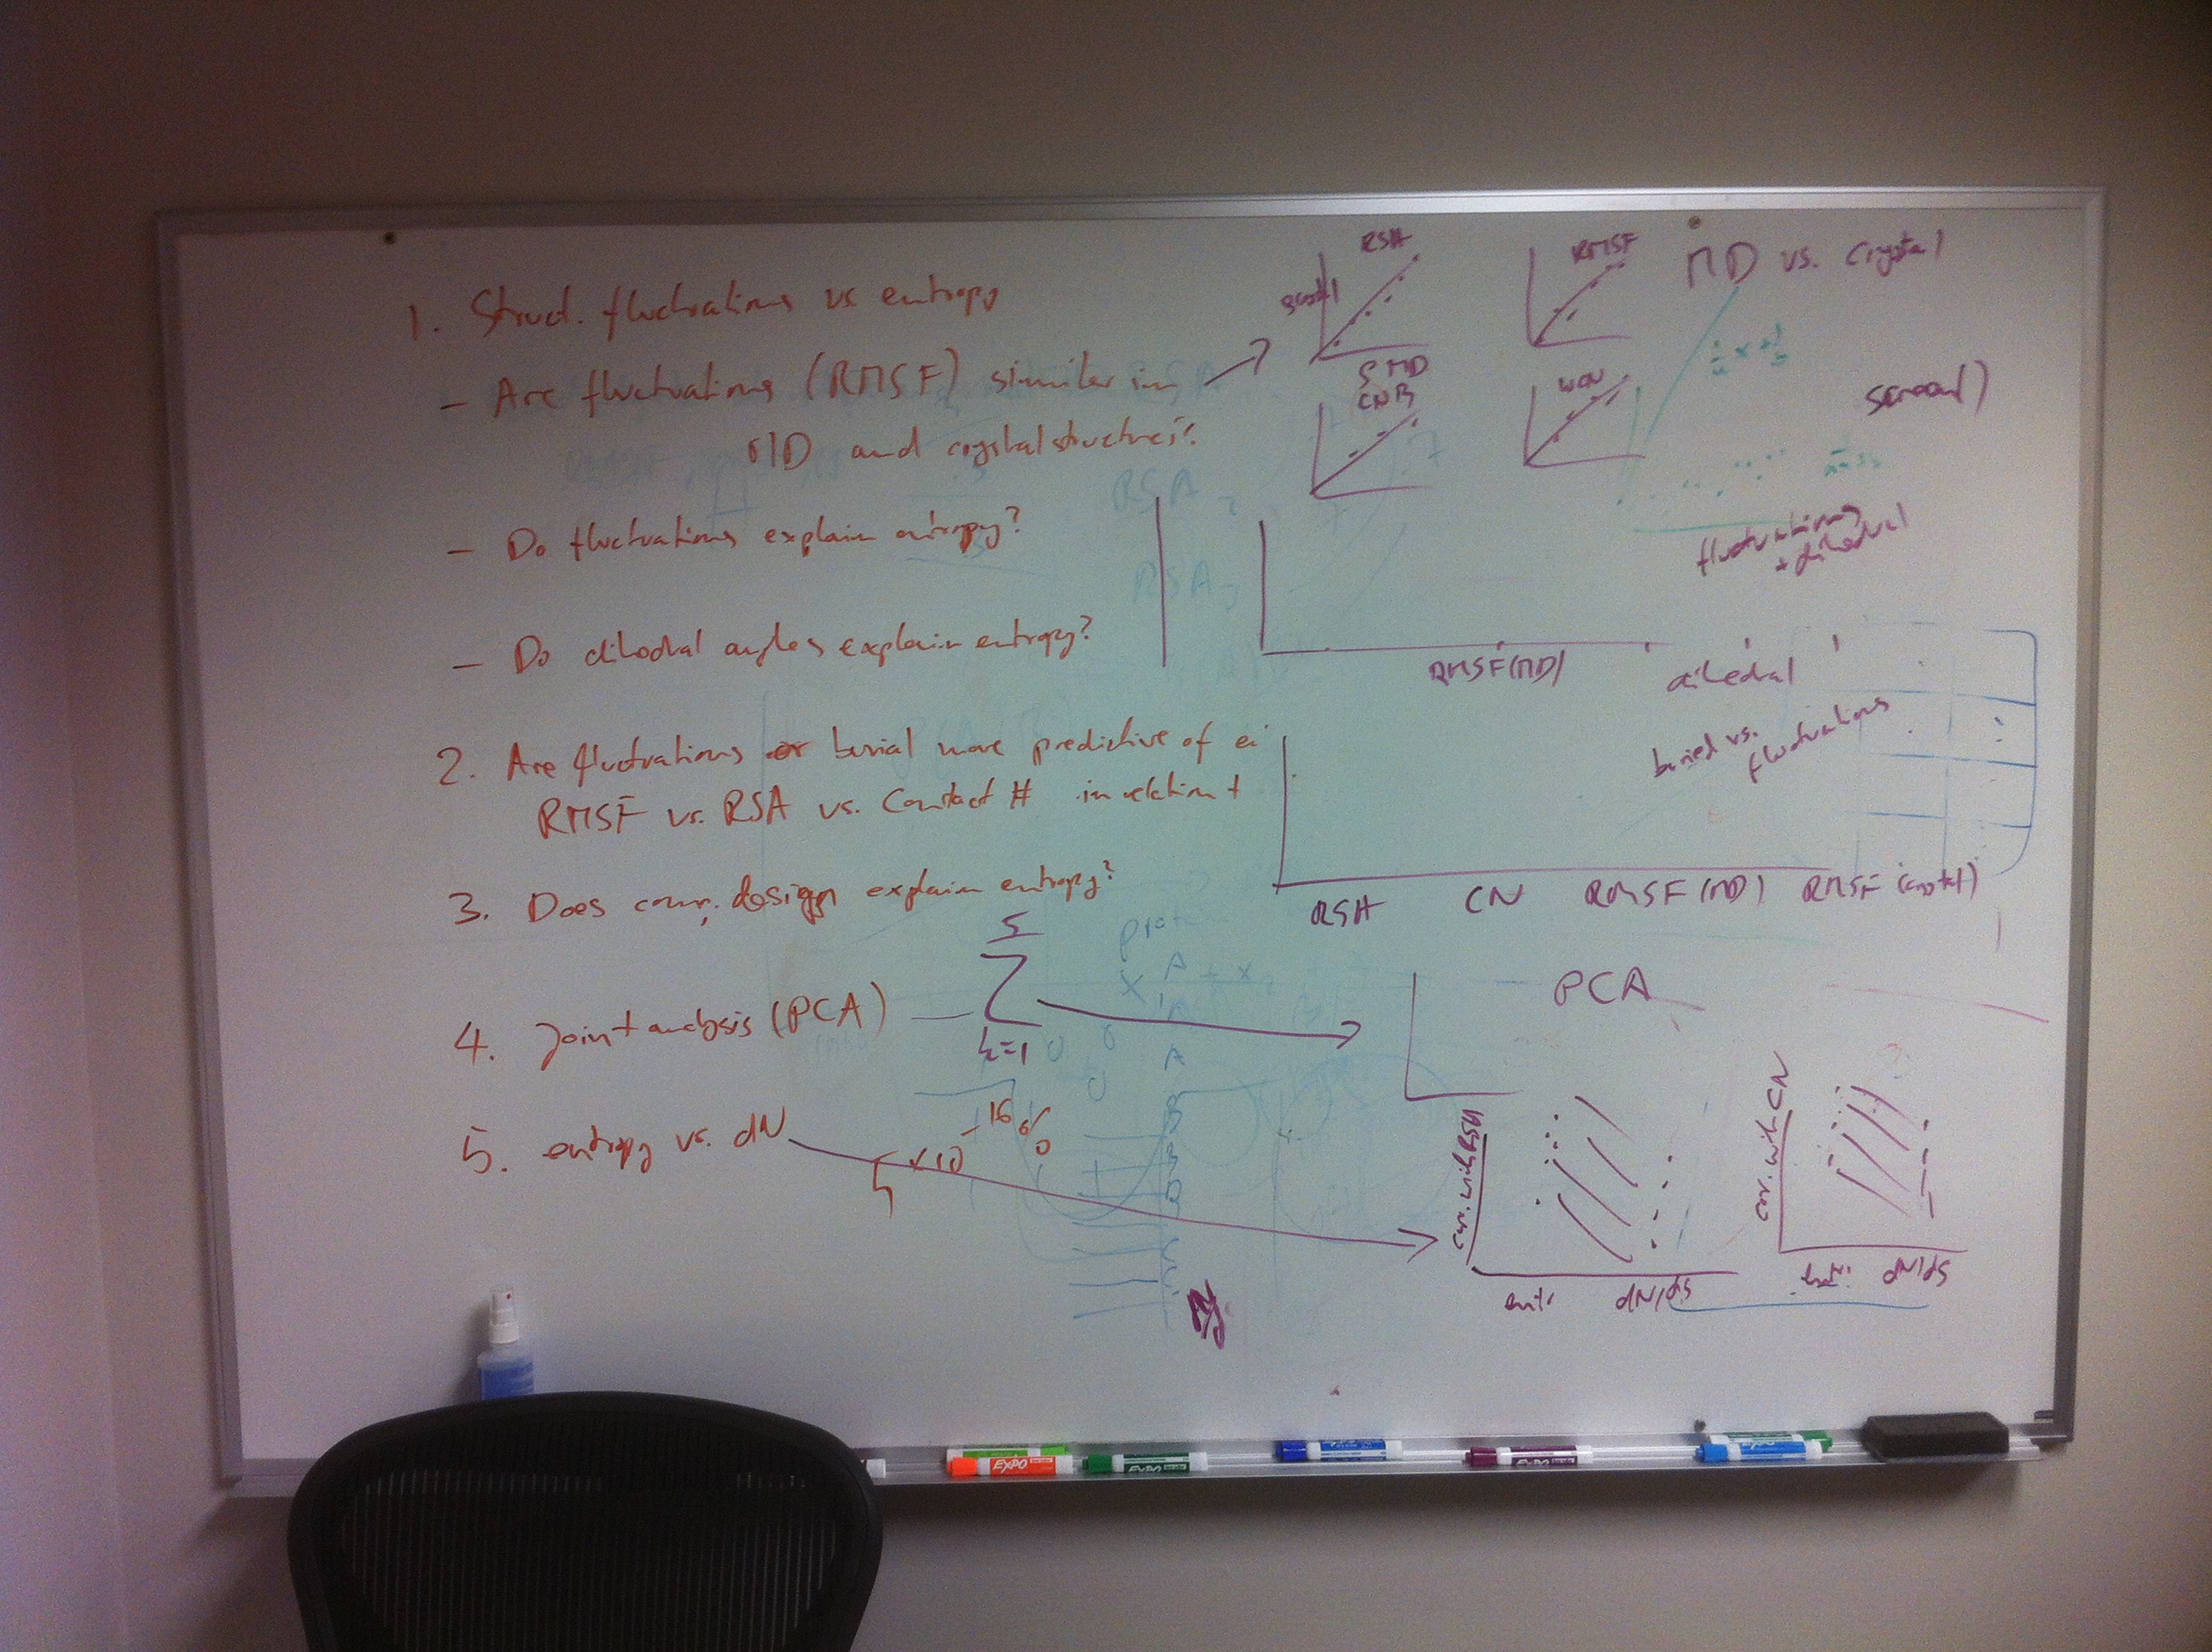 1. Struct. fluctuations vs entropy
- Are fluctuations (RMSF) similar in
MD and crystal structures?
- Do fluctuations explain entropy?
- Do dihedral angles explain entropy?
2. Are fluctuations or burial more predictive of
RMSF vs. RSA vs. Contact # in relation
3. Does comp. design explain entropy?
4. Joint analysis (PCA)
5
k=1
5. entropy vs. dN
RSA
RMSF
MD vs. Crystal
MD
WCN
fluctuations
+ dihedral
RMSF (MD)
dihedral
buried vs.
fluctuations
RSA CN RMSF (MD) RMSF (crystal)
PCA
cor. with RSA
entr.
dN/dS
cor. with CN
entr.
dN/dS
RSA
RSA
EXPO
EXPO
EXPO